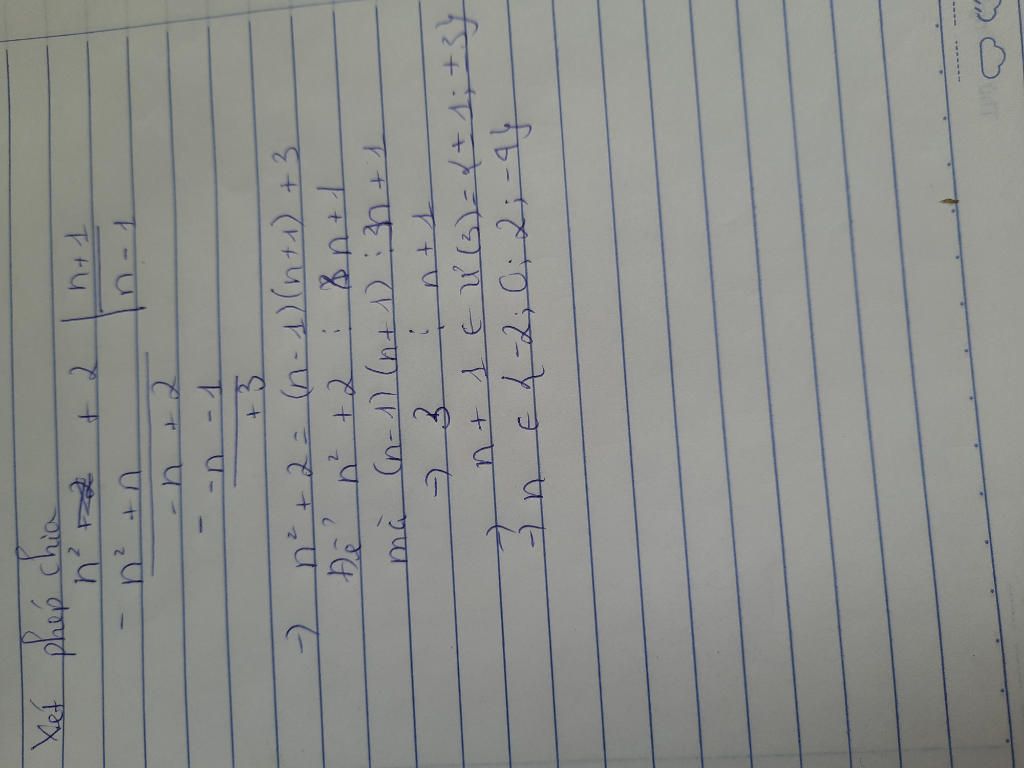 Xét phép chia
n² + 2 | n+1
- n² + n | n-1
- n + 2
- -n - 1
+3
→ n² + 2 = (n-1)(n+1) + 3
Để n² + 2 ⋮ n+1
mà (n-1)(n+1) ⋮ n+1
→ 3 ⋮ n+1
→ n + 1 ∈ Ư(3) = {± 1; ±3}
→ n ∈ {-2; 0; 2; -4}